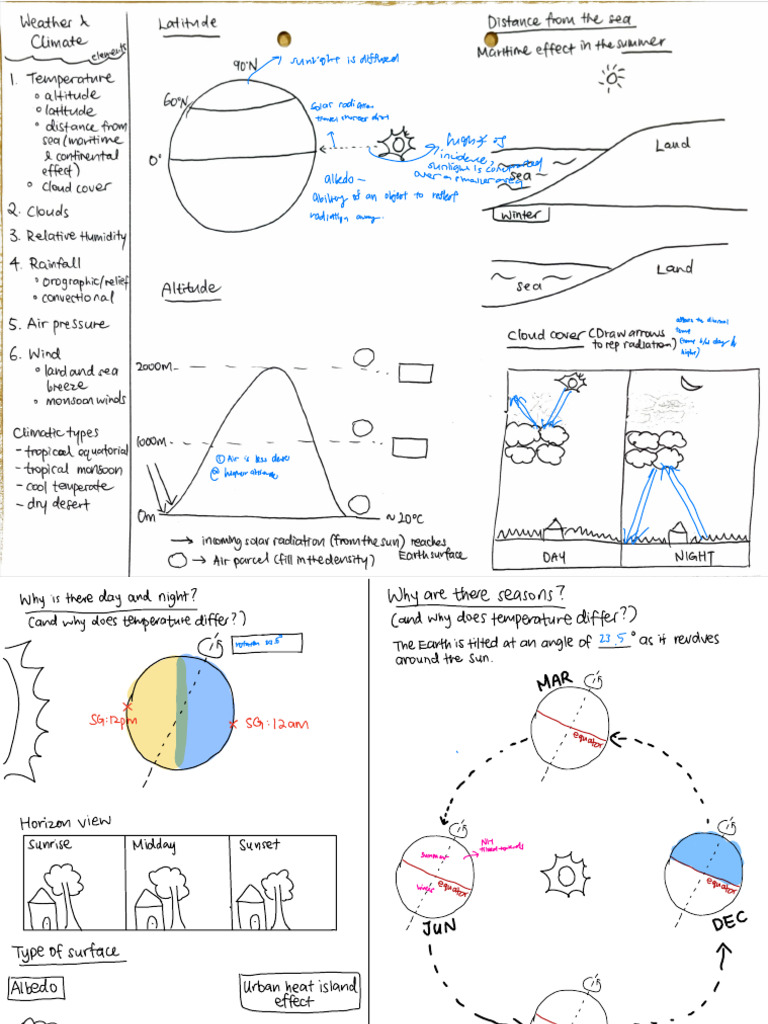 Weather &
Climate
elements
1. Temperature
• altitude
• latitude
• distance from
sea (maritime
& continental
effect)
• cloud cover
2. Clouds
3. Relative Humidity
4. Rainfall
• orographic/relief
• convectional
5. Air pressure
6. Wind
• land and sea
breeze
• monsoon winds
Climatic types
- tropical equatorial
- tropical monsoon
- cool temperate
- dry desert
Latitude
90°N
sunlight is diffused
60°N
solar radiation
travels shorter dist
0°
high of
incidence,
sunlight is concentrated
over a smaller area
albedo -
ability of an object to reflect
radiation away.
Altitude
2000m
1000m
① Air is less dense
@ higher altitudes
0m
~20°C
→ incoming solar radiation (from the sun) reaches
Earth surface
○ → Air parcel (fill in the density)
Distance from the sea
Maritime effect in the summer
Land
sea
Winter
Land
sea
Cloud cover (Draw arrows
to rep radiation)
temp
day &
higher)
DAY
NIGHT
Why is there day and night?
(and why does temperature differ?)
SG: 12pm
SG: 12am
Horizon view
Sunrise
Midday
Sunset
Type of surface
Albedo
Urban heat island
effect
Why are there seasons?
(and why does temperature differ?)
The Earth is tilted at an angle of 23.5° as it revolves
around the sun.
MAR
equator
summer
NH
tilted towards
winter
equator
JUN
equator
DEC